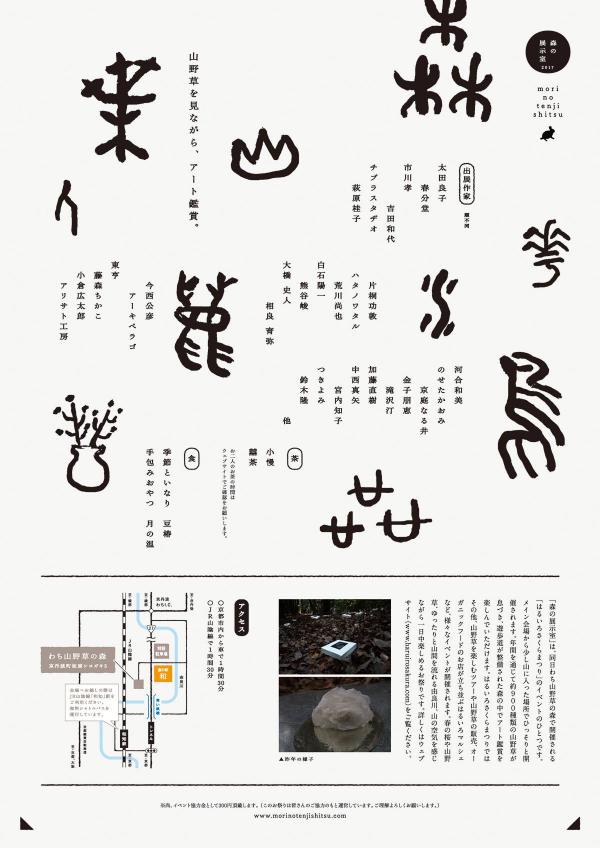 森の
展示室
2017
mori
no
tenji
shitsu
山野草を見ながら、アート鑑賞。
出展作家
順不同
太田良子
春分堂
吉田和代
市川孝
チプラスタヂオ
萩原桂子
片桐功敦
ハタノワタル
荒川尚也
白石陽一
熊谷峻
大橋 史人
相良 育弥
今西公彦
アーキペラゴ
東亨
藤森ちかこ
小倉広太郎
アリサト工房
河合和美
のせたかおみ
京庭なる井
金子朋恵
滝沢汀
加藤直樹
中西真矢
宮内知子
つきよみ
鈴木隆
他
茶
小慢
囍茶
お二人のお茶の時間は
ウェブサイトでご確認をお願いします。
食
季節といなり 豆椿
手包みおやつ 月の温
「森の展示室」は、同日わち山野草の森で開催される
「はるいろさくらまつり」のイベントのひとつです。
メイン会場から少し山に入った場所でひっそりと開
催されます。年間を通じて約900種類の山野草が
息づき、遊歩道が整備された森の中でアート鑑賞を
楽しんでいただけます。はるいろさくらまつりでは
その他、山野草を楽しむツアーや山野草の販売、オー
ガニックフードのお店が立ち並ぶはるいろマルシェ
など、様々なイベントが開催されます。春の桜や山野
草、ゆったりと時間を流れる由良川、山の空気を感じ
ながら一日中楽しめるお祭りです。詳しくはウェブ
サイト(www.haruirosakura.com)をご覧ください。
▲昨年の様子
アクセス
○京都市内から車で1時間30分
○JR山陰線で1時間30分
京丹波
わちI.C.
JR山陰線
由良川
和
わち山野草の森
京丹波町坂原シヨガキ5
和知駅
※尚、イベント協力金として300円頂戴します。(このお祭りは皆さんのご協力のもと運営しています。ご理解よろしくお願いします。)
www.morinotenjishitsu.com